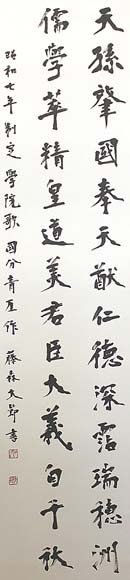 天孫肇國奉天猷仁德深霑瑞穗洲
儒學萃精皇道美君臣大義自千秋
昭和七年制定 學院歌 國分青厓作 藤森大節書